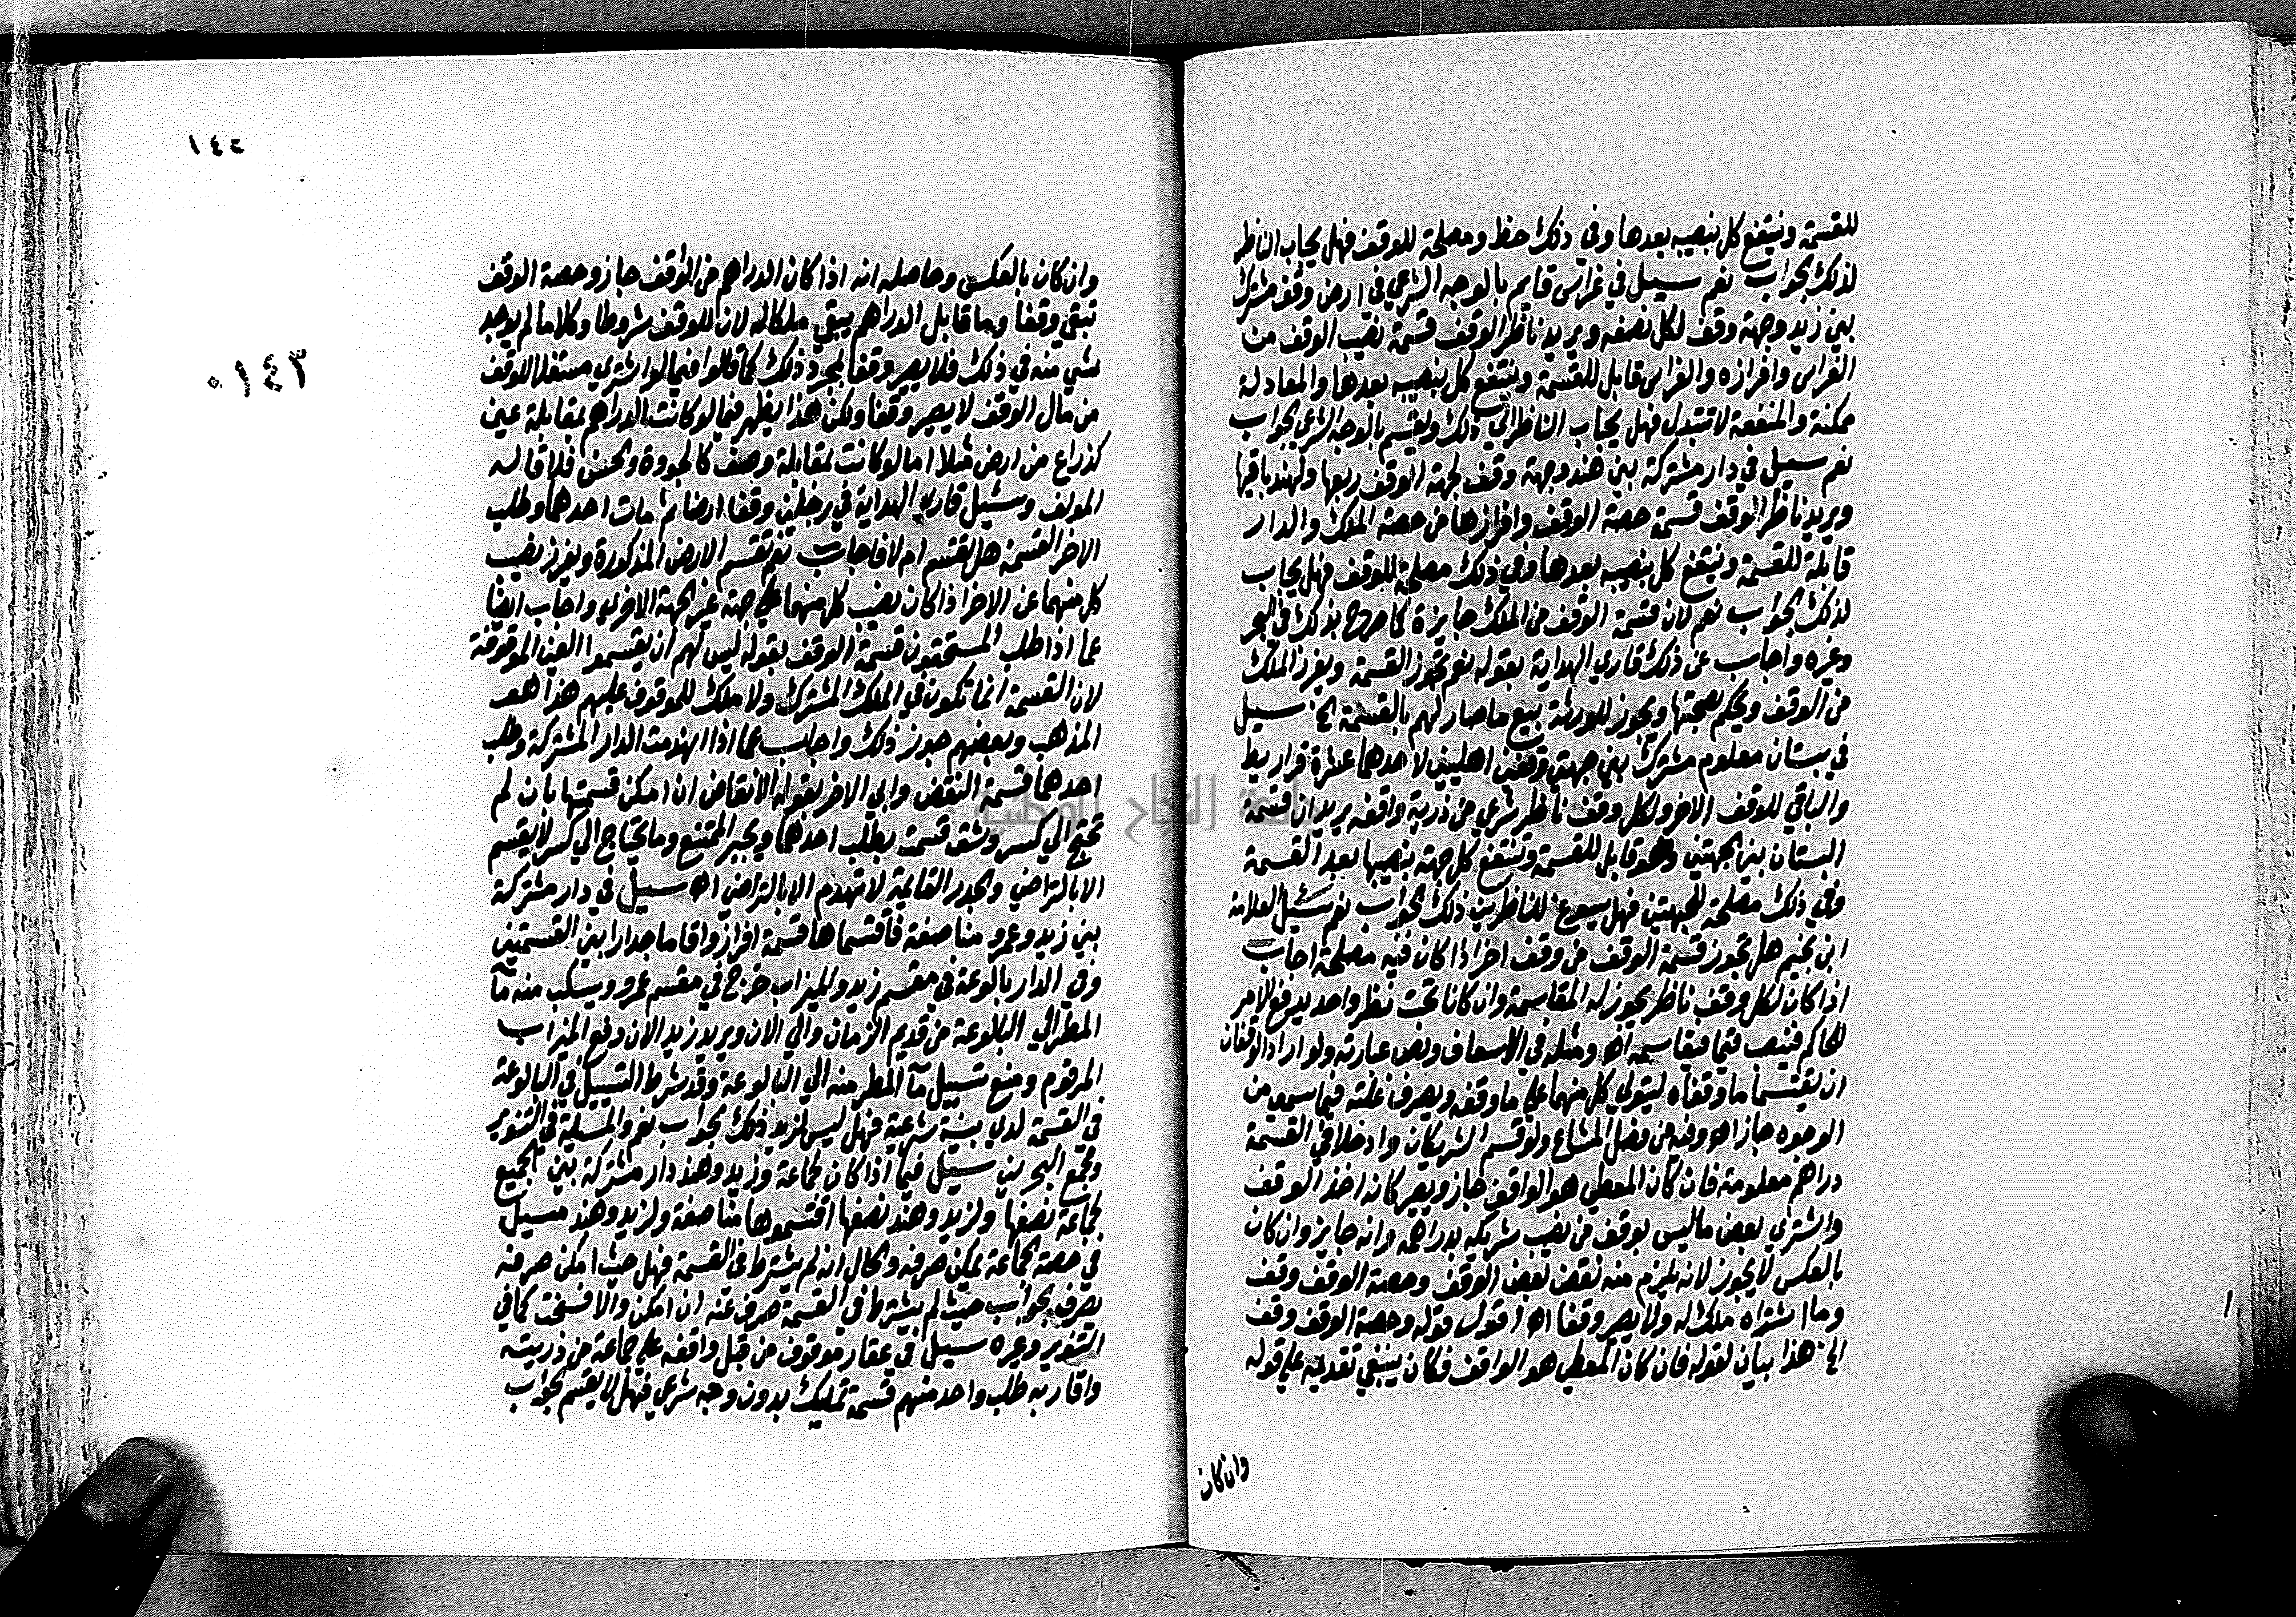 للقسمة وينتفع كل بنصيبه بعدها وفي ذلك حظ ومصلحة للوقف فهل يجاب الناظر
لذلك الجواب نعم سيل في غراس قايم بالوجه الشرعي في ارض وقف مشترك
بين زيد وجهة وقف لكل نصفه ويريد ناظر الوقف قسمة نصيب الوقف من
الغراس وافرازه والغراس قابل للقسمة وينتفع كل بنصيبه بعدها والمعادلة
ممكنة والمنفعة لا تتبدل فهل يجاب الناظر الي ذلك ويقسم بالوجه الشرعي الجواب
نعم سيل في دار مشتركة بين هند وجهة وقف لجهة الوقف ربعها ولهند باقيها
ويريد ناظر الوقف قسمة حصة الوقف وافرازها من حصة الملك والدار
قابلة للقسمة وينتفع كل بنصيبه بعدها وفي ذلك مصلحة للوقف فهل يجاب
لذلك الجواب نعم لان قسمة الوقف من الملك جايزة كما صرح بذلك في البحر
وغيره واجاب عن ذلك قاري الهداية بقوله نعم تجوز القسمة ويفرز الملك
من الوقف ويحكم بصحتها ويجوز للورثة بيع ما صار لهم بالقسمة الخ سيل
في بستان معلوم مشترك بين جهتي وقفين اهليين لاحدهما عشرة قراريط
والباقي للوقف الاخر ولكل وقف ناظر شرعي من ذرية واقفه يريدان قسمة
البستان بين الجهتين وهو قابل للقسمة وتنتفع كل جهة بنصيبها بعد القسمة
وفي ذلك مصلحة للجهتين فهل يسوغ للناظرين ذلك الجواب نعم سئل العلامة
ابن نجيم هل تجوز قسمة الوقف من وقف اخر اذا كان فيه مصلحة اجاب
اذا كان لكل وقف ناظر يجوز له المقاسمة وان كانا تحت نظر واحد يرفع الامر
للحاكم فينصب قيما فيقاسمه اه ومثله في الاسعاف ونص عبارته ولو اراد الواقفان
ان يقتسما ما وقفاه ليتولي كل منهما علي ما وقفه ويصرف غلته فيما سمي من
الوجوه جاز اه وفيه من فصل المشاع ولو قسم الشريكان وادخلا في القسمة
دراهم معلومة فان كان المعطي هو الواقف جاز ويصير كانه اخذ الوقف
واشتري بعض ما ليس بوقف من نصيب شريكه بدراهمه وانه جايز وان كان
بالعكس لا يجوز لانه يلزم منه نقض بعض الوقف وحصة الوقف وقف
وما اشتراه ملك له ولا يصير وقفا اه اقول قوله وحصة الوقف وقف
الخ هذا بيان لقوله فان كان المعطي هو الواقف فكان ينبغي تقديمه علي قوله
وان كان
١٤٢
١٤٣
وان كان بالعكس وحاصله انه اذا كان الدراهم من الوقف جاز وحصة الوقف
تبقي وقفا وما قابل الدراهم يبقي ملكا له لان للوقف شروطا وكلاما لم يوجد
شي منه في ذلك فلا يصير وقفا بمجرد ذلك كما قالوا فيما لو اشتري مستغلا للوقف
من مال الوقف لا يصير وقفا ولكن هذا يظهر فيما لو كانت الدراهم بمقابلة عين
كذراع من ارض مثلا اما لو كانت بمقابلة وصف كالجودة والحسن فلا قاله
المولف وسئيل قاري الهداية في رجلين وقفا ارضا ثم مات احدهما وطلب
الاخر القسمة هل تقسم ام لا فاجاب نعم تقسم الارض المذكورة ويفرز نصيب
كل منهما عن الاخر اذا كان نصيب كل منهما علي جهة غير الجهة الاخري واجاب ايضا
عما اذا طلب المستحقون قسمة الوقف بقوله ليس لهم ان يقتسموا العين الموقوفة
لان القسمة انما تكون في الملك المشترك ولا ملك للموقوف عليهم هذا هو
المذهب وبعضهم جوز ذلك واجاب عما اذا انهدمت الدار المشتركة وطلب
احدهما قسمة النقض وابي الاخر بقوله الانقاض ان امكن قسمتها بان لم
تحتج الي كسر وشق قسمت بطلب احدهما ويجبر الممتنع وما يحتاج الي كسر لا يقسم
الا بالتراضي والجدر القايمة لا تهدم الا بالتراضي اه سيل في دار مشتركة
بين زيد وعمرو مناصفة فاقتسماها قسمة افراز واقاما جدارا بين القسمتين
وفي الدار بالوعة في مقسم زيد والميزاب خرج في مقسم عمرو ويسكب منه مآ
المطر الي البالوعة من قديم الزمان والي الان ويريد زيد الان دفع الميزاب
المرقوم ومنع تسييل مآ المطر منه الي البالوعة وقد شرط التسييل في البالوعة
في القسمة لدي بينة شرعية فهل ليس لزيد ذلك الجواب نعم والمسيلة في التنوير
ومجمع البحرين سيل فيما اذا كان لجماعة وزيد وهند دار مشتركة بين الجميع
لجماعة نصفها ولزيد وهند نصفها اقتسموها مناصفة ولزيد وهند مسيل
في حصة الجماعة يمكن صرفه والحال انه لم يشترط في القسمة فهل حيث امكن صرفه
يصرف الجواب حيث لم يشترط في القسمة صرف عنه ان امكن والا فسخت كما في
التنوير وغيره سيل في عقار موقوف من قبل واقفه علي جماعة من ذريته
واقاربه طلب واحد منهم قسمة تمليك بدون وجه شرعي فهل لا يقسم الجواب